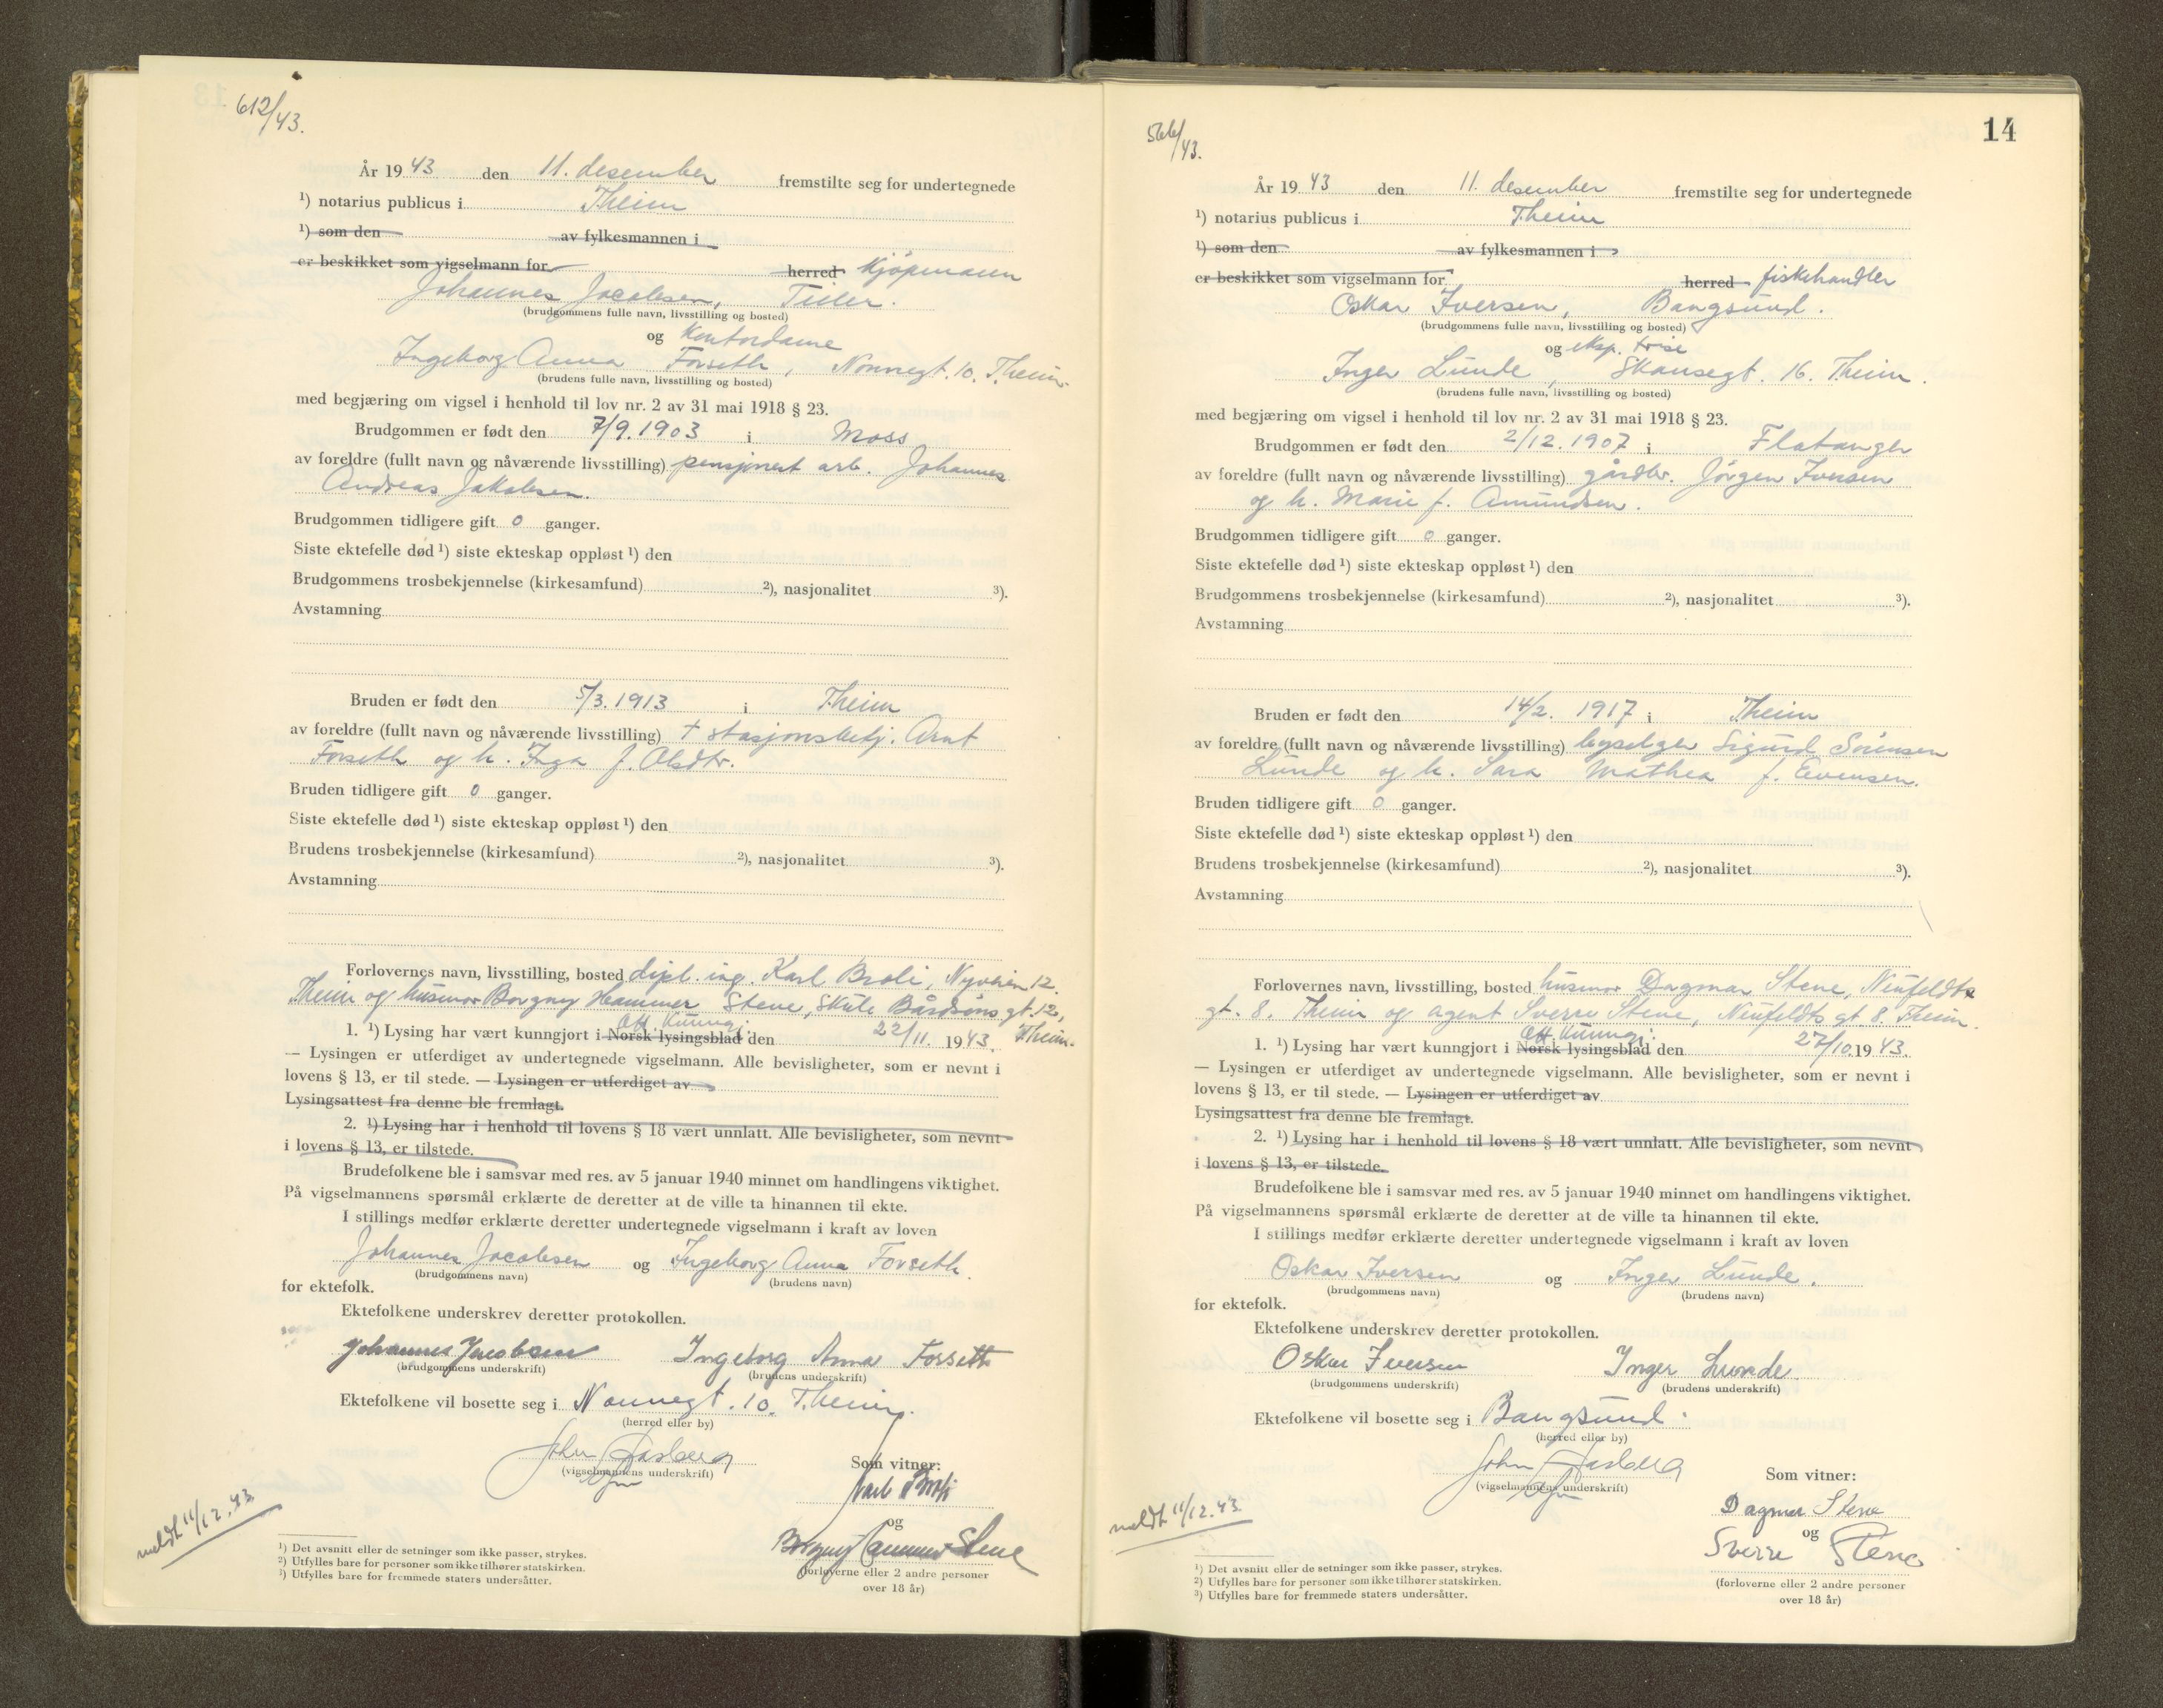 612/43.
År 1943 den 11. desember fremstilte seg for undertegnede
¹) notarius publicus i Theim
¹) som den av fylkesmannen i
er beskikket som vigselmann for herred Kjøpmann
Johannes Jacobsen, Tiller.
(brudgommens fulle navn, livsstilling og bosted)
og Kontordame
Ingeborg Anna Forseth, Nonnegt. 10. Theim.
(brudens fulle navn, livsstilling og bosted)
med begjæring om vigsel i henhold til lov nr. 2 av 31 mai 1918 § 23.
Brudgommen er født den 7/9. 1903 i Moss
av foreldre (fullt navn og nåværende livsstilling) pensjonert arb. Johannes
Andreas Jakobsen.
Brudgommen tidligere gift 0 ganger.
Siste ektefelle død ¹) siste ekteskap oppløst ¹) den
Brudgommens trosbekjennelse (kirkesamfund) ²), nasjonalitet ³).
Avstamning
Bruden er født den 5/3. 1913 i Theim
av foreldre (fullt navn og nåværende livsstilling) + stasjonsbetj. Arnt
Forseth og h. Inga f. Olsdtr.
Bruden tidligere gift 0 ganger.
Siste ektefelle død ¹) siste ekteskap oppløst ¹) den
Brudens trosbekjennelse (kirkesamfund) ²), nasjonalitet ³).
Avstamning
Forlovernes navn, livsstilling, bosted dipl. ing. Karl Broli, Nyveien 12.
Theim og husmor Borgny Hammer Stene, Skule Bårdsøns gt. 12,
Off. Kunngj.
1. ¹) Lysing har vært kunngjort i Norsk lysingsblad den 22/11. 1943. Theim.
— Lysingen er utferdiget av undertegnede vigselmann. Alle bevisligheter, som er nevnt i
lovens § 13, er til stede. — Lysingen er utferdiget av
Lysingsattest fra denne ble fremlagt.
2. ¹) Lysing har i henhold til lovens § 18 vært unnlatt. Alle bevisligheter, som nevnt
i lovens § 13, er tilstede.
Brudefolkene ble i samsvar med res. av 5 januar 1940 minnet om handlingens viktighet.
På vigselmannens spørsmål erklærte de deretter at de ville ta hinannen til ekte.
I stillings medfør erklærte deretter undertegnede vigselmann i kraft av loven
Johannes Jacobsen og Ingeborg Anna Forseth.
(brudgommens navn) (brudens navn)
for ektefolk.
Ektefolkene underskrev deretter protokollen.
Johannes Jacobsen Ingeborg Anna Forseth
(brudgommens underskrift) (brudens underskrift)
Ektefolkene vil bosette seg i Nonnegt. 10. Theim.
(herred eller by)
John Aasberg Som vitner:
(vigselmannens underskrift)
Karl Broli
og
Borgny Hammer Stene
(forloverne eller 2 andre personer
over 18 år)
meldt 11/12. 43
¹) Det avsnitt eller de setninger som ikke passer, strykes.
²) Utfylles bare for personer som ikke tilhører statskirken.
³) Utfylles bare for fremmede staters undersåtter.
14
566/43.
År 1943 den 11. desember fremstilte seg for undertegnede
¹) notarius publicus i Theim
¹) som den av fylkesmannen i
er beskikket som vigselmann for herred fiskehandler
Oskar Iversen, Bangsund.
(brudgommens fulle navn, livsstilling og bosted)
og eksp. trise
Inger Lunde, Skansegt. 16. Theim.
(brudens fulle navn, livsstilling og bosted)
med begjæring om vigsel i henhold til lov nr. 2 av 31 mai 1918 § 23.
Brudgommen er født den 2/12. 1907 i Flatanger
av foreldre (fullt navn og nåværende livsstilling) gårdbr. Jørgen Iversen
og h. Marie f. Amundsen.
Brudgommen tidligere gift 0 ganger.
Siste ektefelle død ¹) siste ekteskap oppløst ¹) den
Brudgommens trosbekjennelse (kirkesamfund) ²), nasjonalitet ³).
Avstamning
Bruden er født den 14/2. 1917 i Theim
av foreldre (fullt navn og nåværende livsstilling) Sigurd Sørensen
Lunde og h. Sara Mathea f. Evensen.
Bruden tidligere gift 0 ganger.
Siste ektefelle død ¹) siste ekteskap oppløst ¹) den
Brudens trosbekjennelse (kirkesamfund) ²), nasjonalitet ³).
Avstamning
Forlovernes navn, livsstilling, bosted husmor Dagmar Stene, Neufeldts
gt. 8. Theim og agent Sverre Stene, Neufeldts gt. 8. Theim.
Off. Kunngj.
1. ¹) Lysing har vært kunngjort i Norsk lysingsblad den 27/10. 1943.
— Lysingen er utferdiget av undertegnede vigselmann. Alle bevisligheter, som er nevnt i
lovens § 13, er til stede. — Lysingen er utferdiget av
Lysingsattest fra denne ble fremlagt.
2. ¹) Lysing har i henhold til lovens § 18 vært unnlatt. Alle bevisligheter, som nevnt
i lovens § 13, er tilstede.
Brudefolkene ble i samsvar med res. av 5 januar 1940 minnet om handlingens viktighet.
På vigselmannens spørsmål erklærte de deretter at de ville ta hinannen til ekte.
I stillings medfør erklærte deretter undertegnede vigselmann i kraft av loven
Oskar Iversen og Inger Lunde.
(brudgommens navn) (brudens navn)
for ektefolk.
Ektefolkene underskrev deretter protokollen.
Oskar Iversen Inger Lunde
(brudgommens underskrift) (brudens underskrift)
Ektefolkene vil bosette seg i Bangsund.
(herred eller by)
John Aasberg Som vitner:
(vigselmannens underskrift)
Dagmar Stene
og
Sverre Stene
(forloverne eller 2 andre personer
over 18 år)
meldt 11/12. 43
¹) Det avsnitt eller de setninger som ikke passer, strykes.
²) Utfylles bare for personer som ikke tilhører statskirken.
³) Utfylles bare for fremmede staters undersåtter.